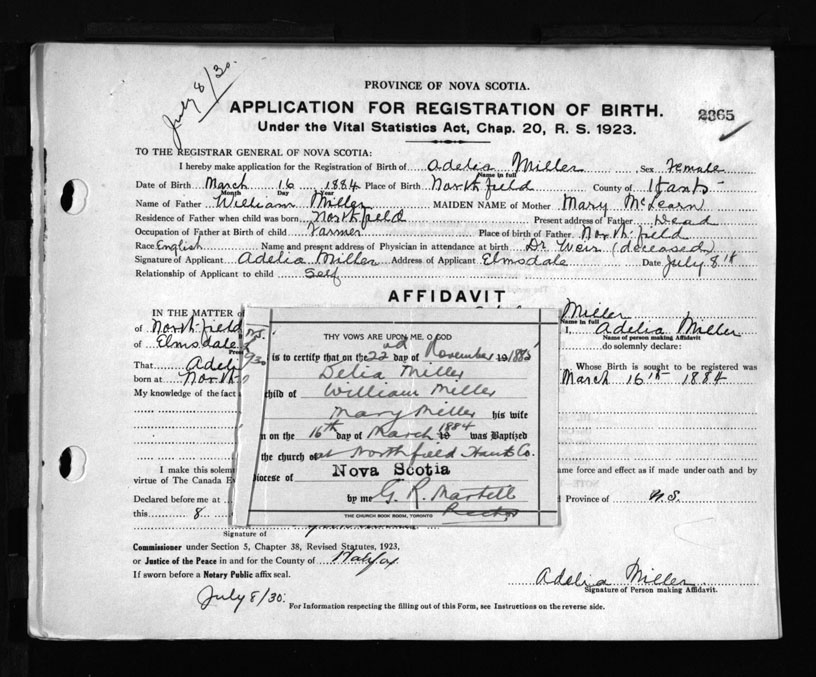 July 8/30.
PROVINCE OF NOVA SCOTIA.
APPLICATION FOR REGISTRATION OF BIRTH.
2365
Under the Vital Statistics Act, Chap. 20, R. S. 1923.
TO THE REGISTRAR GENERAL OF NOVA SCOTIA:
I hereby make application for the Registration of Birth of Adelia Miller Sex Female
Name in full
Date of Birth March 16 1884 Place of Birth Northfield County of Hants
Month Day Year
Name of Father William Miller MAIDEN NAME of Mother Mary McLearn
Residence of Father when child was born Northfield Present address of Father Dead
Occupation of Father at Birth of child Farmer Place of birth of Father Northfield
Race English Name and present address of Physician in attendance at birth Dr Weir (deceased)
Signature of Applicant Adelia Miller Address of Applicant Elmsdale Date July 8th
Relationship of Applicant to child Self
AFFIDAVIT
IN THE MATTER of Miller
Name in full
of Northfield I, Adelia Miller
Name of person making Affidavit
of Elmsdale do solemnly declare:
That Adeli Whose Birth is sought to be registered was
born at North March 16th 1884
My knowledge of the fact
N.S.
THY VOWS ARE UPON ME, O GOD
is to certify that on the 22nd day of November 1885
Delia Miller
child of William Miller
Mary Miller his wife
n on the 16th day of March 1884 was Baptized
the church of at Northfield Hants Co.
Diocese of Nova Scotia
by me G. R. Martell
Rector
THE CHURCH BOOK ROOM, TORONTO
I make this solem ame force and effect as if made under oath and by
virtue of The Canada Ev
Declared before me at Province of N.S.
this 8
Signature of
Commissioner under Section 5, Chapter 38, Revised Statutes, 1923,
or Justice of the Peace in and for the County of Halifax
If sworn before a Notary Public affix seal.
Adelia Miller
Signature of Person making Affidavit.
July 8/30.
For Information respecting the filling out of this Form, see Instructions on the reverse side.